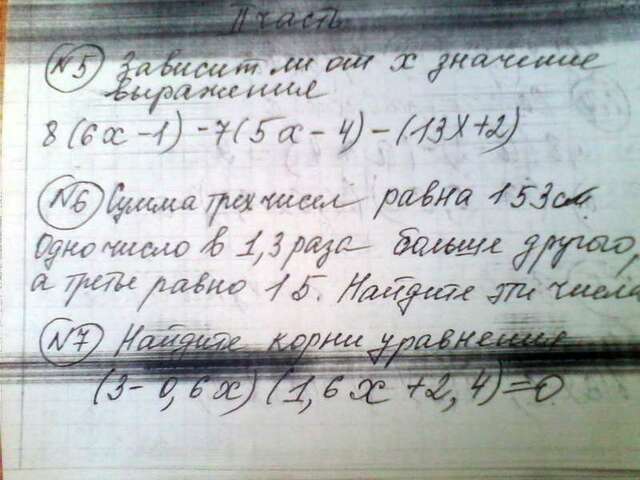 II часть
№5 Зависит ли от х значение
выражения
8(6х-1)-7(5х-4)-(13х+2)
№6 Сумма трех чисел равна 153см
Одно число в 1,3 раза больше другого,
а третье равно 15. Найдите эти числа
№7 Найдите корни уравнения
(3-0,6х)(1,6х+2,4)=0